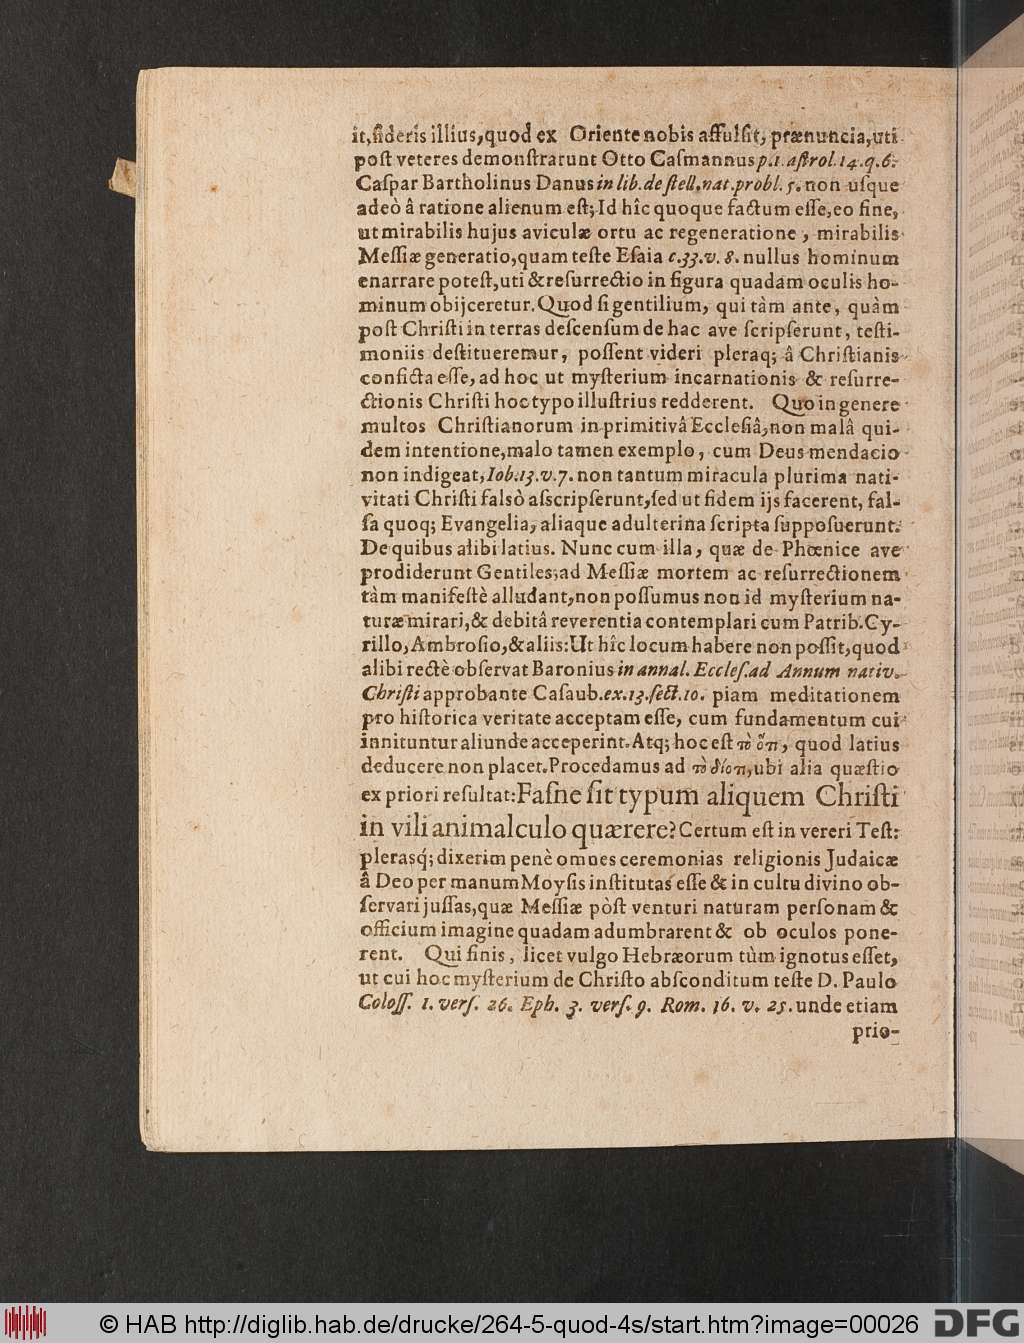 it,ſideris illius,quod ex Oriente nobis affulſit, prænuncia,uti
poſt veteres demonſtrarunt Otto Caſmannus p.1.aſtrol.14.q.6.
Caſpar Bartholinus Danus in lib.de ſtell.nat.probl. 5. non uſque
adeò â ratione alienum eſt; Id hîc quoque factum eſſe,eo fine,
ut mirabilis hujus aviculæ ortu ac regeneratione , mirabilis
Meſſiæ generatio,quam teſte Eſaia c.33.v. 8. nullus hominum
enarrare poteſt,uti & reſurrectio in figura quadam oculis ho-
minum obijceretur. Quod ſi gentilium, qui tàm ante, quàm
poſt Chriſti in terras deſcenſum de hac ave ſcripſerunt, teſti-
moniis deſtitueremur, poſſent videri pleraq; â Chriſtianis
conficta eſſe, ad hoc ut myſterium incarnationis & reſurre-
ctionis Chriſti hoc typo illuſtrius redderent. Quo in genere
multos Chriſtianorum in primitivâ Eccleſiâ,non malâ qui-
dem intentione,malo tamen exemplo, cum Deus mendacio
non indigeat,Iob.13.v.7. non tantum miracula plurima nati-
vitati Chriſti falsò aſscripſerunt,ſed ut fidem ijs facerent, fal-
ſa quoq; Evangelia, aliaque adulterina ſcripta ſuppoſuerunt.
De quibus alibi latius. Nunc cum illa, quæ de Phœnice ave
prodiderunt Gentiles;ad Meſſiæ mortem ac reſurrectionem
tàm manifeſtè alludant,non poſſumus non id myſterium na-
turæ mirari,& debitâ reverentia contemplari cum Patrib.Cy-
rillo, Ambroſio,& aliis: Ut hîc locum habere non poſſit,quod
alibi rectè obſervat Baronius in annal. Eccleſ.ad Annum nativ.
Chriſti approbante Caſaub.ex.13.ſect.10. piam meditationem
pro hiſtorica veritate acceptam eſſe, cum fundamentum cui
innituntur aliunde acceperint. Atq; hoc eſt τὸ ὅτι, quod latius
deducere non placet. Procedamus ad τὸ διότι,ubi alia quæſtio
ex priori reſultat: Faſne ſit typum aliquem Chriſti
in vili animalculo quærere? Certum eſt in vereri Teſt:
plerasq́; dixerim penè omnes ceremonias religionis Judaicæ
â Deo per manum Moyſis inſtitutas eſſe & in cultu divino ob-
ſervari juſſas,quæ Meſſiæ pòſt venturi naturam perſonam &
officium imagine quadam adumbrarent & ob oculos pone-
rent. Qui finis , licet vulgo Hebræorum tùm ignotus eſſet,
ut cui hoc myſterium de Chriſto abſconditum teſte D. Paulo
Coloſſ. 1. verſ. 26. Eph. 3. verſ. 9. Rom. 16. v. 25. unde etiam
prio-
© HAB http://diglib.hab.de/drucke/264-5-quod-4s/start.htm?image=00026
DFG